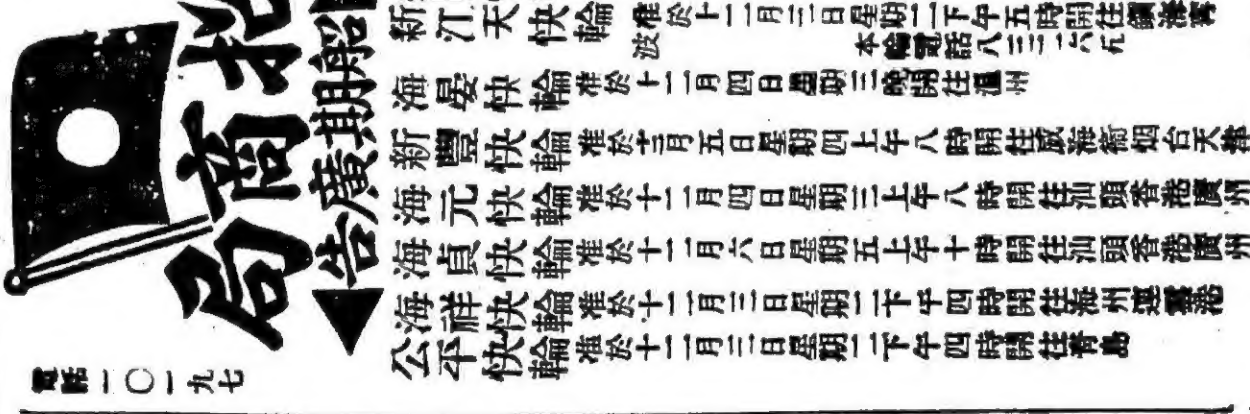 招商局
船期廣告
新江天快輪准於十二月三日星期二下午五時開往鎮海寧
波
本輪電話八三三六九
海晏快輪准於十二月四日星期三晚開往溫州
新豐快輪准於十二月五日星期四上午八時開往威海衛烟台天津
海元快輪准於十二月四日星期三上午八時開往汕頭香港廣州
海貞快輪准於十二月六日星期五上午十時開往汕頭香港廣州
海祥快輪准於十二月三日星期二下午四時開往海州連雲港
公平快輪准於十二月三日星期二下午四時開往青島
電話一〇一九七